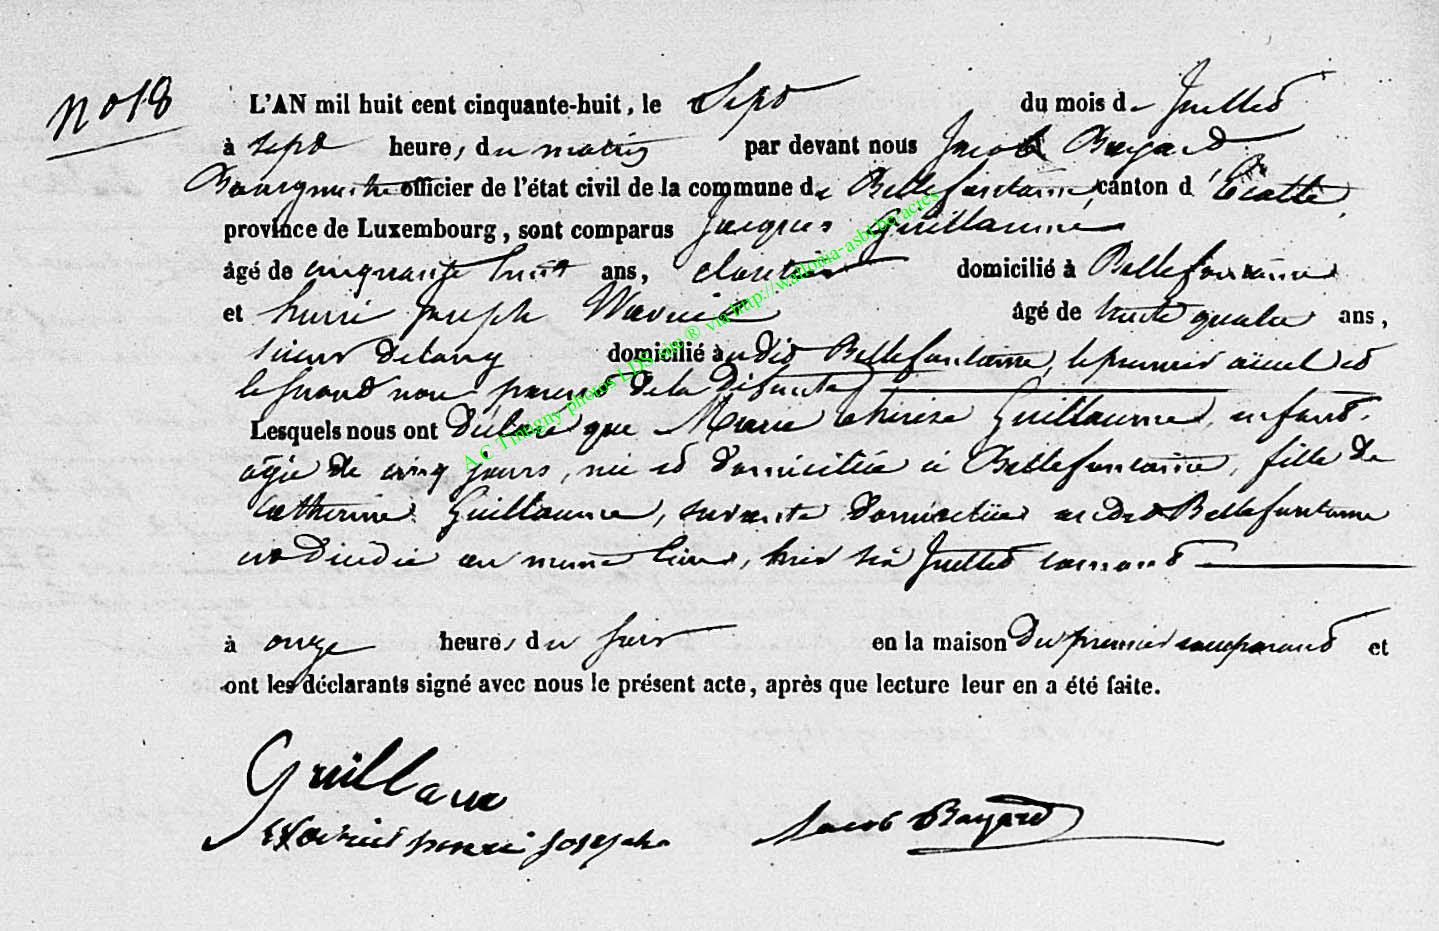 No 18
L'AN mil huit cent cinquante-huit, le sept du mois de Juillet
à sept heures du matin par devant nous Jacob Bayard
Bourgmestre officier de l'état civil de la commune de Bellefontaine, canton d'Etalle,
province de Luxembourg, sont comparus Jacques Guillaume
âgé de cinquante huit ans, domicilié à Bellefontaine
et henri joseph âgé de trente quatre ans,
domicilié audit Bellefontaine, le premier aieul et
le second non parent de la défunte
Lesquels nous ont déclaré que Marie thérèse Guillaume, enfant
agée de cinq jours, née et domiciliée à Bellefontaine, fille de
catherine Guillaume, servante domiciliée audit Bellefontaine
est décédée au même lieu, hier six Juillet courant
à onze heures du soir en la maison du premier comparant et
ont les déclarants signé avec nous le présent acte, après que lecture leur en a été faite.
Guillaume
henri joseph Jacob Bayard
A.C Tintigny photos LDS.org ® via http://wallonia-asbl.be/actes